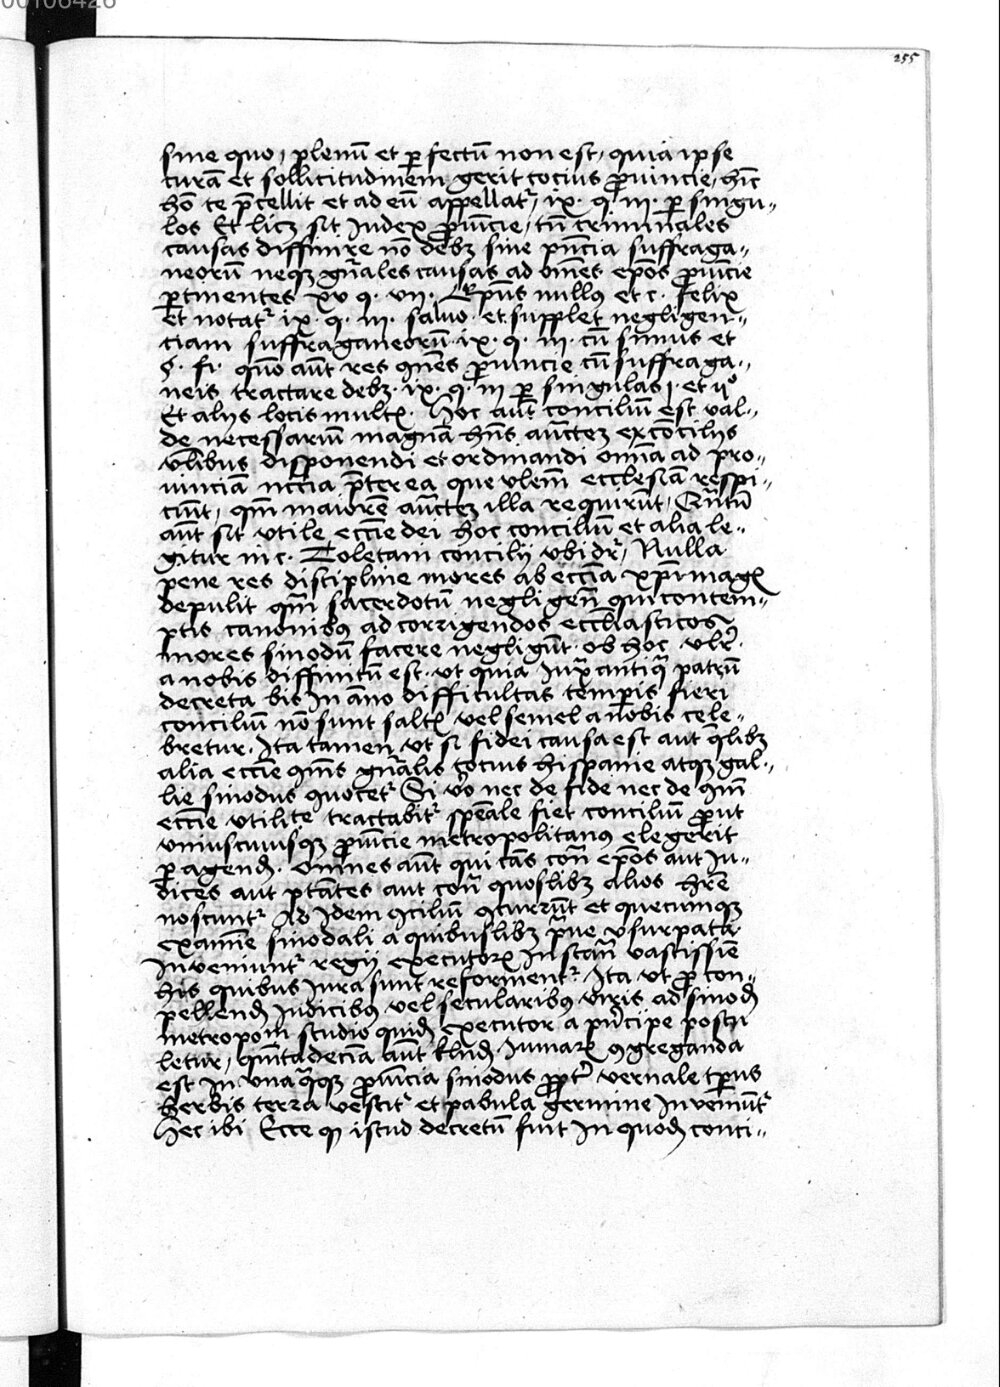 00106426
255
sine quo, plenū et ꝑfectū non est, quia ipse
curā et sollicitudinem gerit tocius ꝓuincie, hīc
hō te p̄cellit et ad eū appellatᷣ, ix. q. iii. ꝑ singu-
los Et licꝫ sit Iudex ꝓuīcie, tn̄ criminales
causas diffinire nō debꝫ sine pn̄cia suffraga-
neorū neqꝫ gn̄ales causas ad om̄es ep̄os ꝓuīcie
ꝑtinentes xv q. vii. Ep̄us nullꝰ et c. felix
et notatᷣ ix. q. iii. saluo. et supplet negligen-
ciam suffraganeorū ix. q. iii. cū simus et
§. fi. qn̄o aūt res ꝯn̄es ꝓuincie cū suffraga-
neis tractare debꝫ. ix. q. iii ꝑ singulas j. et ijº
Et alijs locis multꝭ. Hoc aūt conciliū est val-
de necessariū magnā hn̄s auc̄tem ex cōcilijs
vl̄ibus disponendi et ordinandi om̄ia ad pro-
uinciā nec̄cia p̄terea que vl̄em ecclesiā respi-
ciūt, qm̄ maiorē auc̄tem illa requirūt, Qn̄tū
aūt sit vtile ecc̄ie dei hoc conciliū et alia le-
gitur in c. Toletani concilij vbi dr̄, Nulla
pene res discipline mores ab ecc̄ia xp̄i magꝭ
depulit qm̄ sacerdotū negligen̄ qui contem-
ptis canonibꝰ ad corrigendos eccl̄iasticos
mores sinodū facere negligūt. ob hoc vlr̄
a nobis diffinitū est. vt quia Iux̄ antiq̄ patrū
decreta bis In āno difficultas tēpis fieri
conciliū nō sunt saltē vel semel a nobis cele-
bretur. Ita tamen vt si fidei causa est aut q̄libꝫ
alia ecc̄ie ꝯīs gn̄alis tocius hispanie atqꝫ gal-
lie sinodus ꝯuocetᷣ Si vō nec de fide nec de ꝯm̄
ecc̄ie vtilite tractabitᷣ spēale fiet conciliū ꝓut
vniuscuiusqꝫ ꝓuīcie metropolitanꝰ elegerit
ꝑagend̄. Omnes aūt qui cās con̄ ep̄os aut Iu-
dices aut ptātes aut con̄ quoslibꝫ alios hr̄e
noscuntᷣ Ad Idem ꝯciliū ꝯcurrūt et quecumqꝫ
examīe sinodali a quibuslibꝫ pᷣue vsurpata
Inueniuntᷣ regij executorꝭ Instan̄ vastissīe
his quibus Iura sunt reformentᷣ. Ita vt ꝓ con-
pellend̄ Iudicibꝰ vel secularibꝰ viris ad sinod̄
metropoīn studio quid̄ executor a pⁱncipe postu
letur, quīta decīa aūt kl̄nd̄ Iuniarꝭ ꝯgreganda
est In vnaq̄qꝫ ꝓuīcia sinodus ꝓptᷣ vernale tꝑus
herbis terra vestitᷣ et pabula germine Inueniūtᷣ
Hec ibi Ecce ꝙ istud decretū fuit In quod̄ conci-